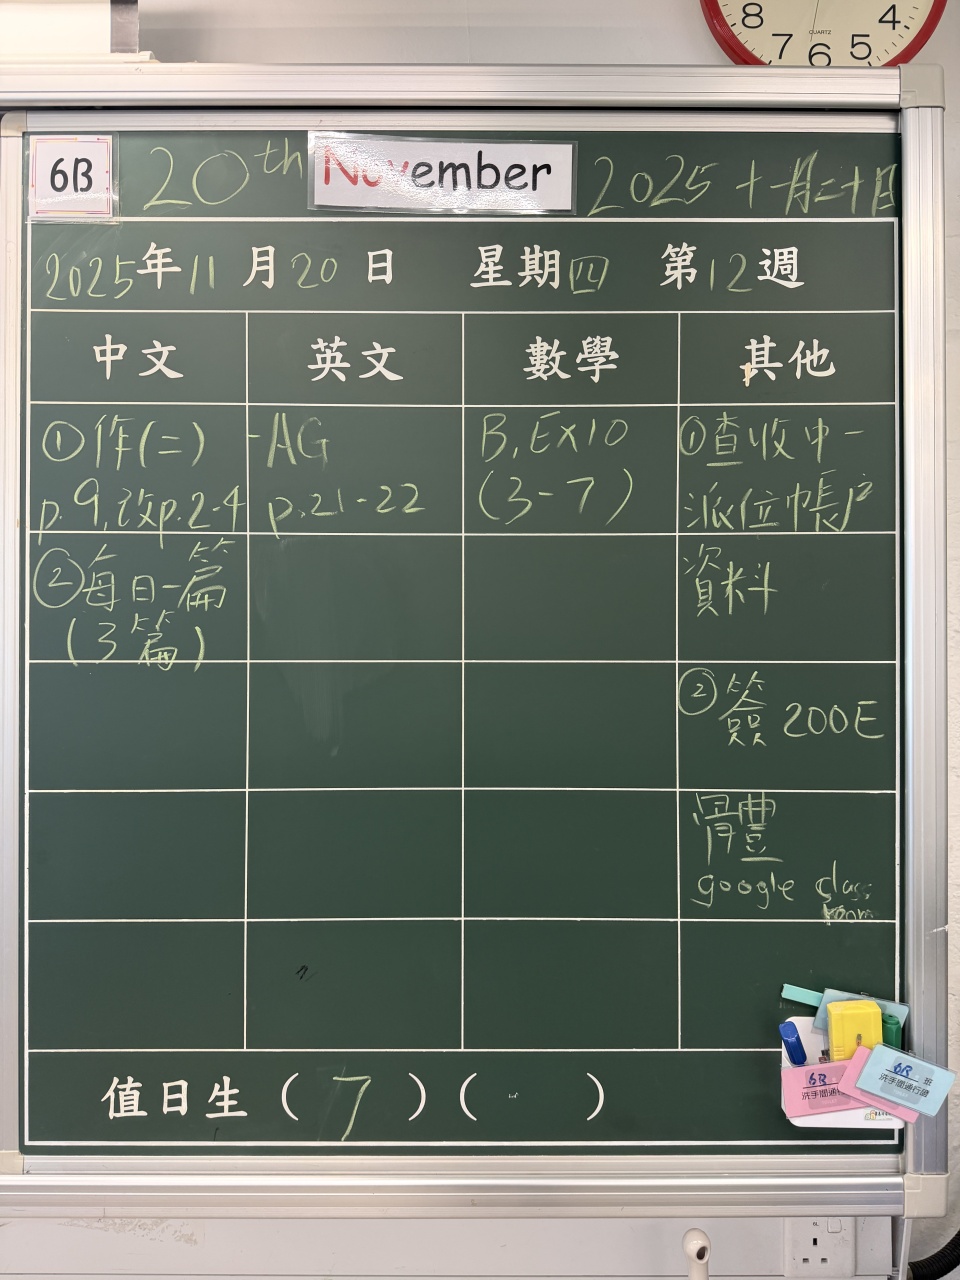 8 7 6 5 4
QUARTZ
6B 20th November 2025 十一月二十日
2025年11月20日 星期四 第12週
中文 英文 數學 其他
①作(二)
p.9,改p.2-4
②每日一篇
(3篇)
-AG
p.21-22
B,Ex10
(3-7)
①查收中一
派位帳户
資料
②簽 200E
體
google class
room
值日生 ( 7 ) ( )
6B
洗手間通行證
6B 班
洗手間通行證